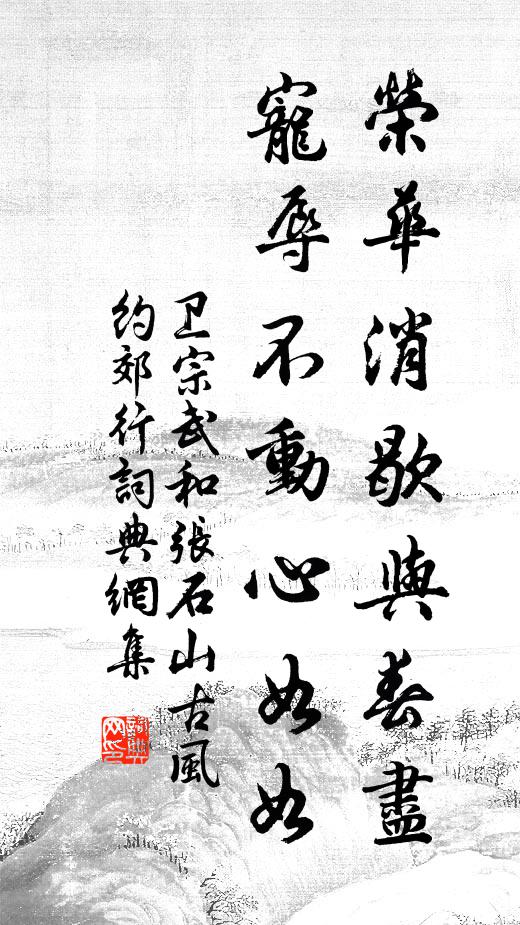 榮華消歇與春盡
寵辱不動心如如
卫宗武和張石山古風
約郊行詞典網集
詞典网印